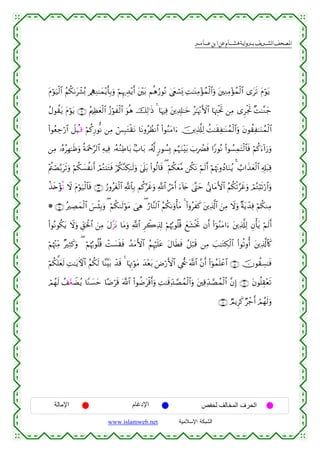 المصحف الشريف برواية هشام عن ابن عامر
يَوْمَ تَرَى الْمُؤْمِنِينَ وَالْمُؤْمِنَاتِ يَسْعَى نُورُهُم بَيْنَ أَيْدِيهِمْ وَبِأَيْمَانِهِم بُشْرَاكُمُ الْيَوْمَ
جَنَّاتٌ تَجْرِي مِن تَحْتِهَا الْأَنْهَارُ خَالِدِينَ فِيهَا ذَلِكَ هُوَ الْفَوْزُ الْعَظِيمُ يَوْمَ يَقُولُ
الْمُنَافِقُونَ وَالْمُنَافِقَاتُ لِلَّذِينَ ءَامَنُوا انظُرُونَا نَقْتَبِسْ مِن نُّورِكُمْ قِيلَ ارْجِعُوا
وَرَاءَكُمْ فَالْتَمِسُوا نُورًا فَضُرِبَ بَيْنَهُم بِسُورٍ لَّهُ بَابٌ بَاطِنُهُ فِيهِ الرَّحْمَةُ وَظَاهِرُهُ مِن
قِبَلِهِ الْعَذَابُ يُنَادُونَهُمْ أَلَمْ نَكُن مَّعَكُمْ قَالُوا بَلَى وَلَكِنَّكُمْ فَتَنتُمْ أَنفُسَكُمْ وَتَرَبَّصْتُمْ
وَارْتَبْتُمْ وَغَرَّتْكُمُ الْأَمَانِيُّ حَتَّى جَاءَ أَمْرُ اللَّهِ وَغَرَّكُم بِاللَّهِ الْغَرُورُ فَالْيَوْمَ لَا تُؤْخَذُ
مِنكُمْ فِدْيَةٌ وَلَا مِنَ الَّذِينَ كَفَرُوا مَأْوَاكُمُ النَّارُ هِيَ مَوْلَاكُمْ وَبِئْسَ الْمَصِيرُ
أَلَمْ يَأْنِ لِلَّذِينَ ءَامَنُوا أَن تَخْشَعَ قُلُوبُهُمْ لِذِكْرِ اللَّهِ وَمَا نَزَّلَ مِنَ الْحَقِّ وَلَا يَكُونُوا
كَالَّذِينَ أُوتُوا الْكِتَابَ مِن قَبْلُ فَطَالَ عَلَيْهِمُ الْأَمَدُ فَقَسَتْ قُلُوبُهُمْ وَكَثِيرٌ مِّنْهُمْ
فَاسِقُونَ اعْلَمُوا أَنَّ اللَّهَ يُحْيِي الْأَرْضَ بَعْدَ مَوْتِهَا قَدْ بَيَّنَّا لَكُمُ الْآيَاتِ لَعَلَّكُمْ
تَعْقِلُونَ إِنَّ الْمُصَّدِّقِينَ وَالْمُصَّدِّقَاتِ وَأَقْرَضُوا اللَّهَ قَرْضًا حَسَنًا يُضَعَّفُ لَهُمْ
وَلَهُمْ أَجْرٌ كَرِيمٌ
الحرف المخالف لحفص الإدغام الإمالة
الشبكة الإسلامية www.islamweb.net